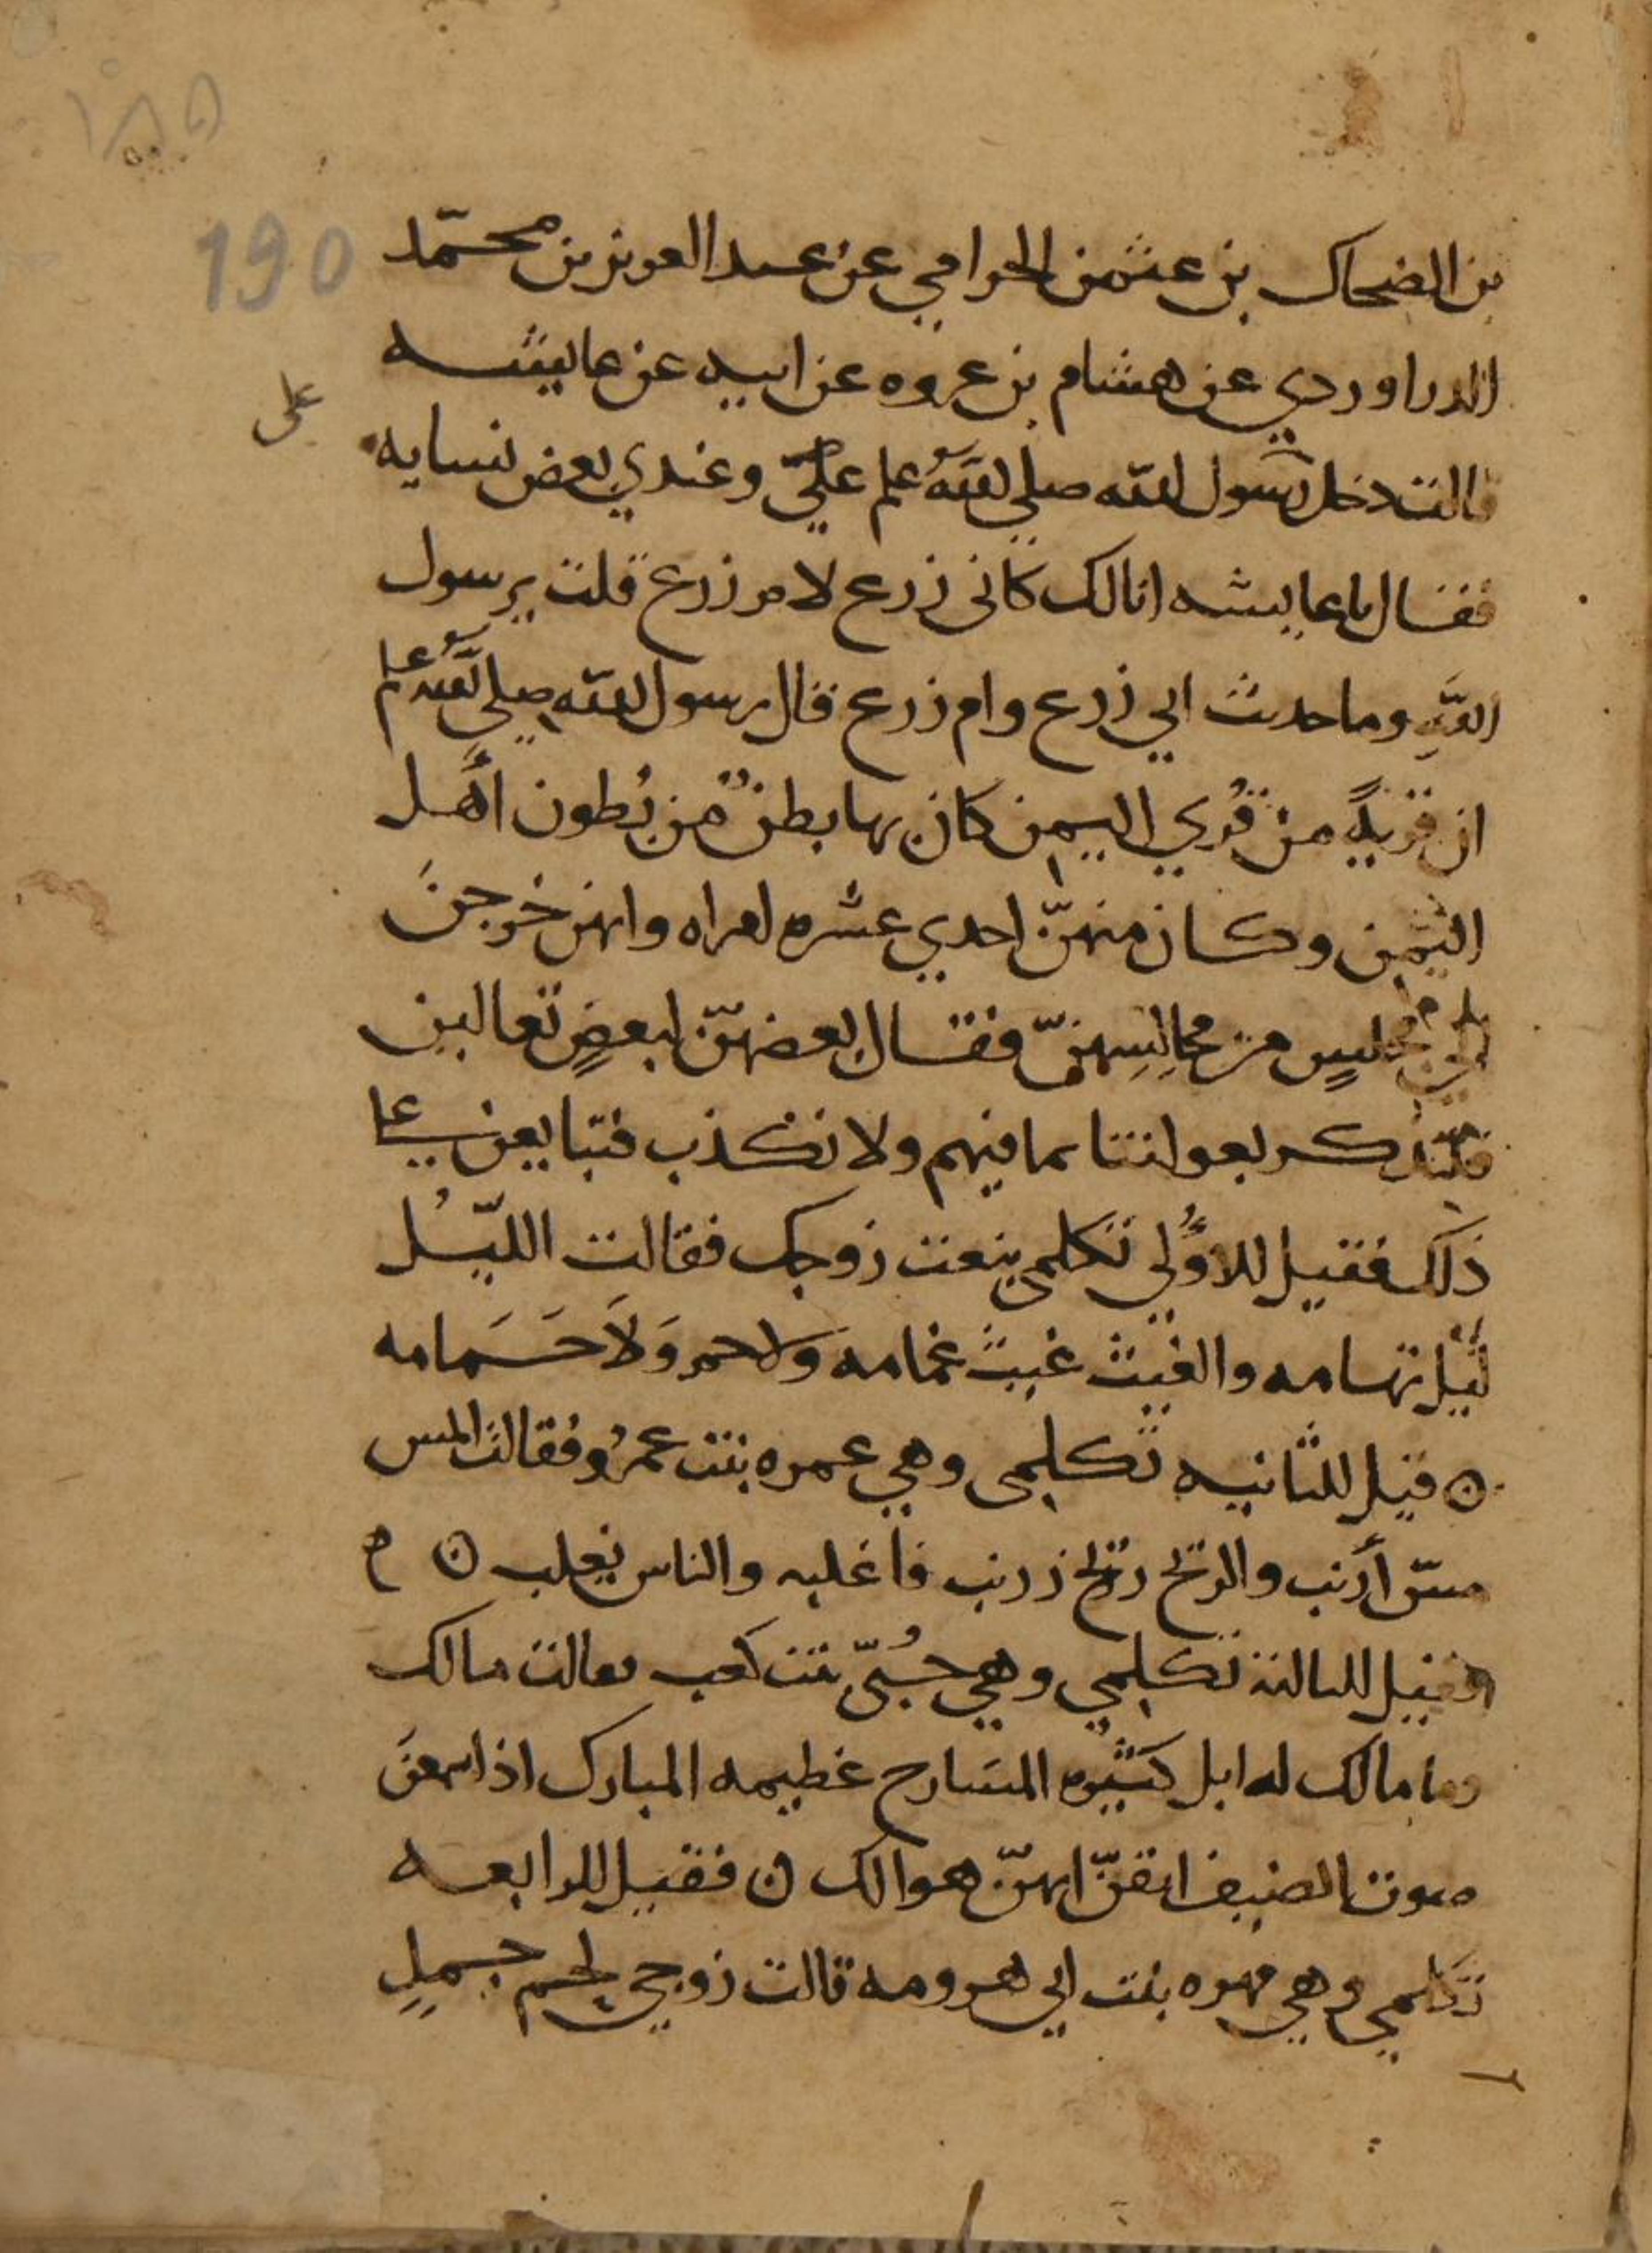 ١٨٥
190
بن الضحاك بن عثمن الحزامي عن عبد العزيز بن محمّد
الدراوردي عن هشام بن عروه عن ابيه عن عايشه
على
قالت دخل رسول الله صلى الله علم عليّ وعندي بعض نسايه
فقال يا عايشه انا لك كابى زرع لام زرع قلت يرسول
الله وما حديث ابي زرع وام زرع قال رسول الله صلي الله علم
ان قريةً من قُري اليمن كان بها بطنٌ من بُطون أهل
اليمن وكان منهنّ احدي عشره امراه وانهن خرجنَ
الي مجلسٍ من مجالِسِهنّ فقال بعضهنّ لبعضٍ تعالين
فلنذكر بعولتنا بما فيهم ولا نكذب فتبايعن علي
ذلك فقيل للاوُلي تكلمي بنعت زوجك فقالت الليّلُ
لَيْل تهامه والغيث غيثُ غمامه ولا حر وَلَا خَمامه
ن قيل للثانيه تكلمى وهي عمره بنت عمرُو فقالت المس
مسّ أرنب والريح ريح زرنب فاغلبه والناس يغلب ن م
فقيل للثالثة تكلمي وهي حُبّى بنت كعب فقالت مالك
وما مالك له ابل كَثيره المسَارح عظيمه المبارك اذا سمعنَ
صوت الضيف ايقنّ انهنّ هوالك ن فقيل للرابعه
تكلمي وهي مهره بنت ابي هرومه قالت زوجي لحم جملٍ